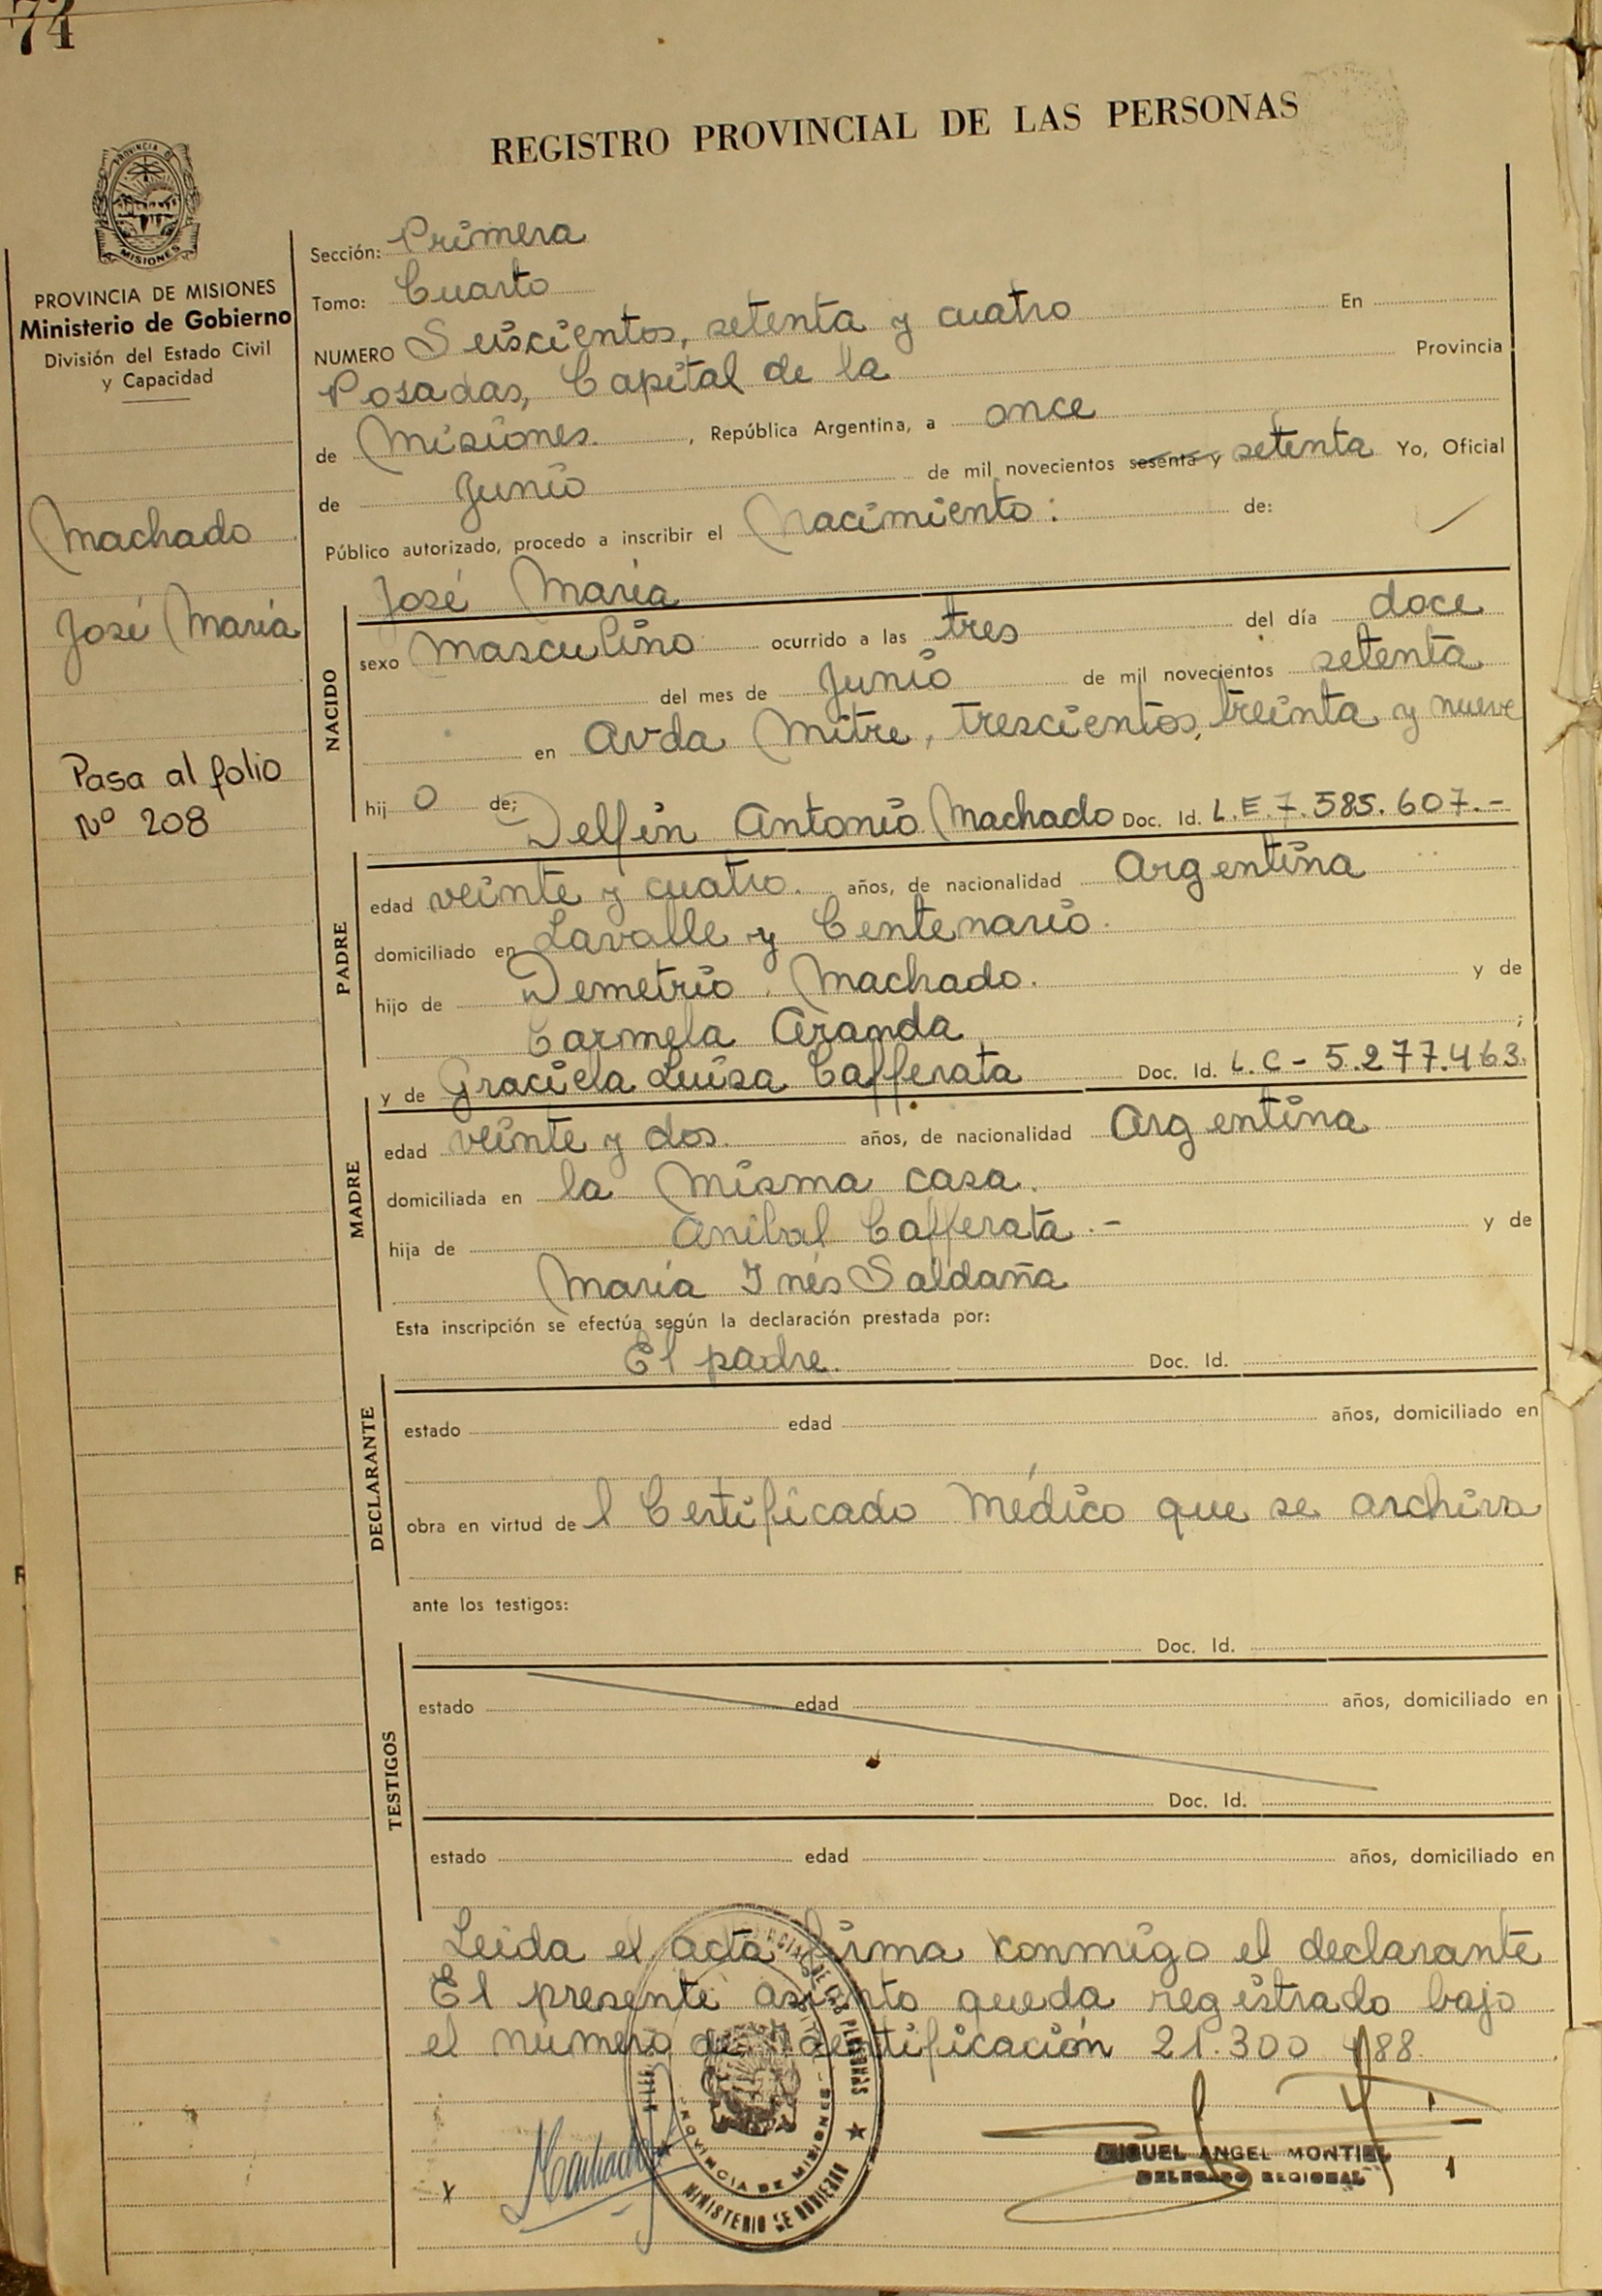 74
REGISTRO PROVINCIAL DE LAS PERSONAS
PROVINCIA DE MISIONES
PROVINCIA DE MISIONES
Ministerio de Gobierno
División del Estado Civil
y Capacidad
Machado
José María
Pasa al folio
Nº 208
Sección: Primera
Tomo: Cuarto
NUMERO Seiscientos, setenta y cuatro En
Posadas, Capital de la Provincia
de Misiones. , República Argentina, a once
de Junio de mil novecientos sesenta y setenta Yo, Oficial
Público autorizado, procedo a inscribir el Nacimiento: de:
José María
NACIDO
sexo Masculino ocurrido a las tres del día doce
del mes de Junio de mil novecientos setenta
en Avda Mitre, trescientos, treinta y nueve
hij o de: Delfin Antonio Machado Doc. Id. L.E. 7.585.607.-
PADRE
edad veinte y cuatro. años, de nacionalidad Argentina
domiciliado en Lavalle y Centenario.
hijo de Demetrio Machado. y de
Carmela Aranda ;
y de Graciela Luisa Cafferata Doc. Id. L.C - 5.277.463.
MADRE
edad veinte y dos. años, de nacionalidad Argentina
domiciliada en la misma casa.
hija de Anibal Cafferata.- y de
María Inés Saldaña
Esta inscripción se efectúa según la declaración prestada por:
El padre. Doc. Id.
DECLARANTE
estado edad años, domiciliado en
obra en virtud de l Certificado Médico que se archiva
ante los testigos:
Doc. Id.
TESTIGOS
estado edad años, domiciliado en
Doc. Id.
estado edad años, domiciliado en
Leida el acta firma conmigo el declarante
El presente asiento queda registrado bajo
el número de Identificación 21.300 188.
PROVINCIA DE MISIONES
MINISTERIO DE GOBIERNO
x Machado
MIGUEL ANGEL MONTIEL
DELEGADO REGIONAL